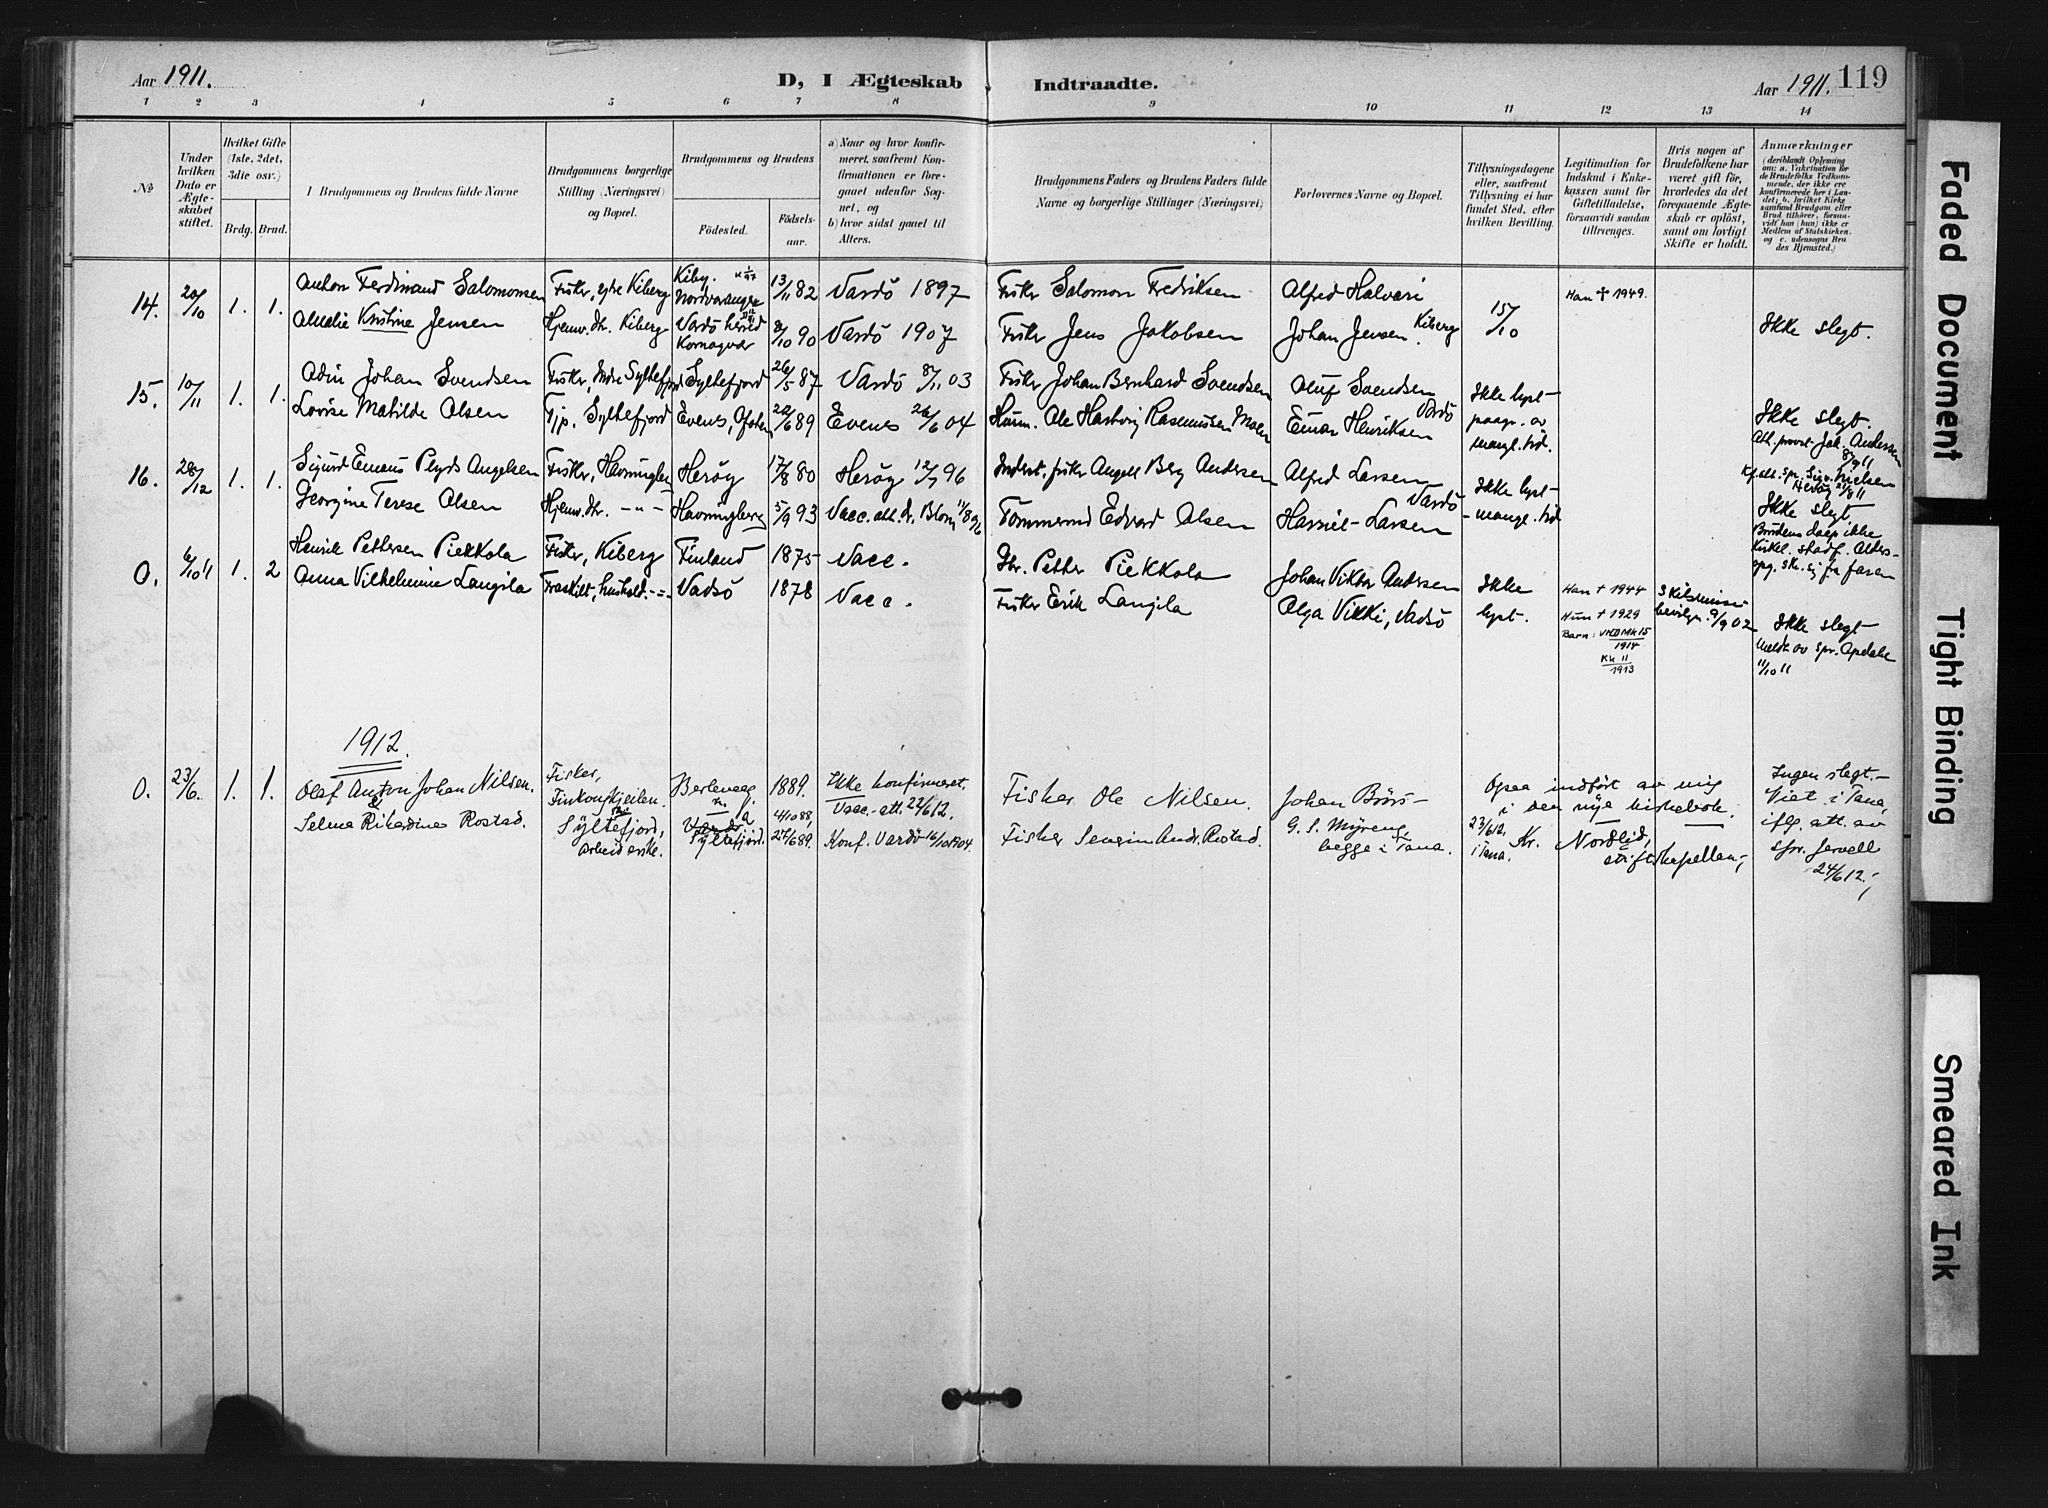 Aar 1911.
D, I Ægteskab Indtraadte.
Aar 1911. 119
1 2 3 4 5 6 7 8 9 10 11 12 13 14
No
Under hvilken Dato er Ægteskabet stiftet.
Hvilket Gifte (1ste, 2det, 3die osv.)
Brdg. Brud.
I Brudgommens og Brudens fulde Navne
Brudgommens borgerlige Stilling (Næringsvei) og Bopæl.
Brudgommens og Brudens
Födested.
Födselsaar.
a) Naar og hvor konfirmeret, saafremt Konfirmationen er foregaaet udenför Sognet, og
b) hvor sidst gaaet til Alters.
Brudgommens Faders og Brudens Faders fulde Navne og borgerlige Stillinger (Næringsvei)
Forlovernes Navne og Bopæl.
Tillysningsdagene eller, saafremt Tillysning ei har fundet Sted, efter hvilken Bevilling.
Legitimation for Indskud i Enkekassen samt for Giftetilladelse, forsaavidt saadan tiltrænges.
Hvis nogen af Brudefolkene har været gift för, hvorledes da det foregaaende Ægteskab er oplöst, samt om lovligt Skifte er holdt.
Anmærkninger
(deriblandt Oplysning om: a. Vakcination for de Brudefolks Vedkommende, der ikke ere konfirmerede her i Landet; b. hvilket Kirkesamfund Brudgom eller Brud tilhörer, forsaavidt han (hun) ikke er Medlem af Statskirken, og c. udensogns Brudes Hjemsted.)
14. 20/10 1. 1.
Anton Ferdinand Salomonsen Fisker, ytre Kiberg Kiby, Nordvaranger 13/11 82 Vardö 1897 Fisker Salomon Fredriksen Alfred Halvari 15/10 Han † 1949.
Amalie Kristine Jensen Hjemv. dtr. Kiberg Vardö herred Komagvær 8/10 90 Vardö 1907 Fisker Jens Jakobsen Johan Jensen. Kiberg Ikke slegt.
15. 10/11 1. 1.
Odin Johan Svendsen Fisker, Indre Syltefjord Syltefjord 26/5 87 Vardö 8/11 03 Fisker Johan Bernhard Svendsen Oluf Svendsen Ikke lyst
Lovise Matilde Olsen Tjp. Syltefjord Evenes, Ofoten 20/6 89 Evenes 26/6 04 Husm. Ole Hartvig Rasmussen Moen Einar Henriksen Vardö paagr. av mangl. tid. Ikke slegt.
Att. provst Jak. Andersen
16. 28/12 1. 1.
Sigurd Emaus Angelsen Fisker, Havningberg Heröy 17/8 80 Heröy 12/7 96 Inderst. fisker Angell Berg Andersen Alfred Larsen Vardö Ikke lyst
Georgine Terese Olsen Hjemv. dtr. -"- Havningberg 5/9 93 Vacc. att. dr. Blom 11/8 96 Tömmermd Edvard Olsen Harriet Larsen mangl. tid Ikke slegt
Brudens daap ikke kirkel. stadf. Alders-opg. sk. sig fra faren
0. 6/10 11 1. 2
Henrik Pettersen Piekkola Fisker, Kiberg Finland 1875 Vacc. Gbr. Petter Piekkola Johan Viktor Andersen Ikke Han † 1944
Anna Vilhelmine Langila Fraskilt, hushold. -"- Vadsö 1878 Vacc. Fisker Erik Langila Olga Vikki, Vadsö lyst. Hun † 1929 Skilsmissebevilgn. 9/9 02 Ikke slegt
Barn: VHD Mk 15/1914
Kk 11/1913
Meldt av spr. Opdahl
11/10 11
1912.
0. 23/6. 1. 1.
Olaf Anton Johan Nilsen. Fisker, Finkongkjeilen. Berlevaag. 1889. 4/10 88, Ikke konfirmeret. Vacc.-att. 22/6 12. Fisker Ole Nilsen. Johan Börs Ogsaa indfört av mig i den nye kirkebok. Ingen slegt.
Selma Rikardine Rostad. Syltefjord, arbeiderske. Syltefjord. 27/6 89. Konf. Vardö 16/10 1904. Fisker Severin Andr. Rostad. G. S. Myreng, begge i Tana. 23/6 12, i Tana. Kr. Nordlid, stiftskapellan.
Viet i Tana, iflg. att. av spr. Jervell 24/6 12.
Faded Document
Tight Binding
Smeared Ink